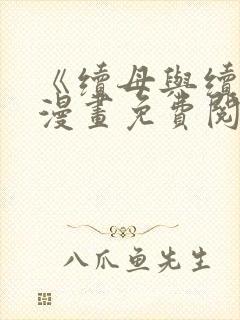 《續母與續
漫畫免費閱
八爪鱼先生